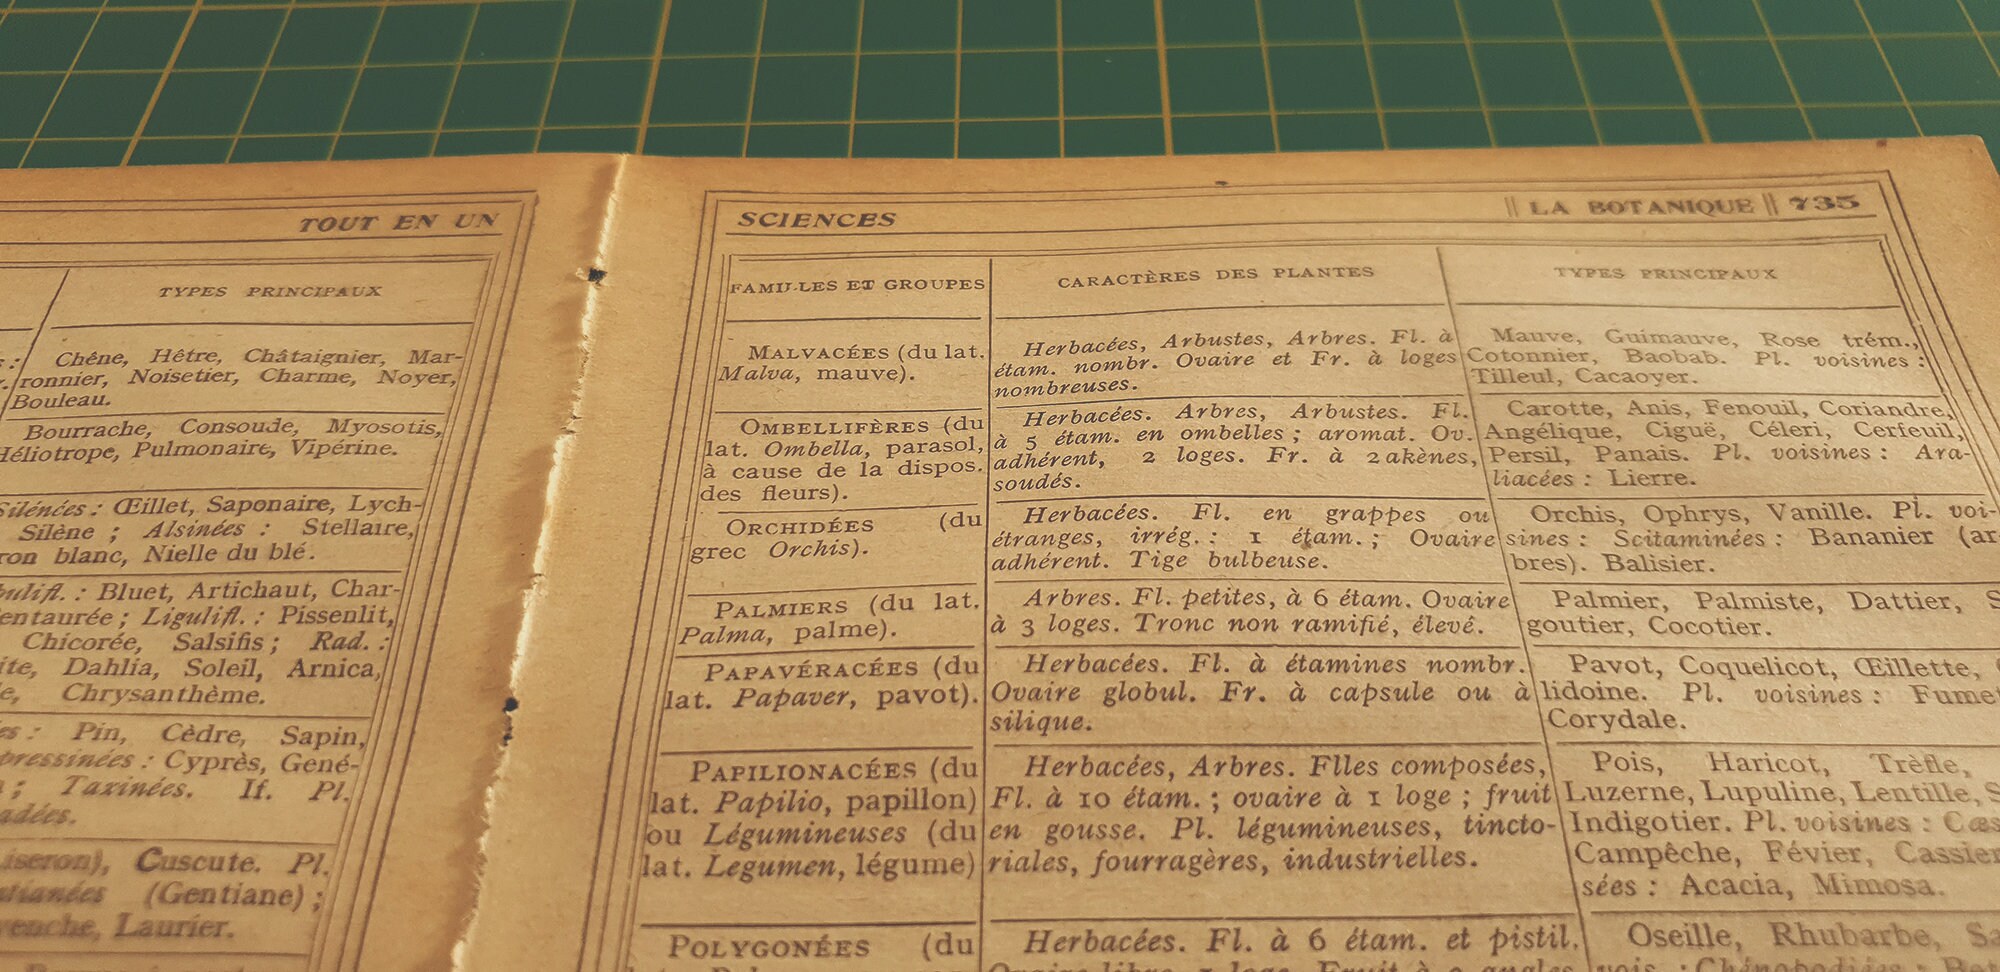 TOUT EN UN
TYPES PRINCIPAUX
Chêne, Hêtre, Châtaignier, Mar-
ronnier, Noisetier, Charme, Noyer,
Bouleau.
Bourrache, Consoude, Myosotis,
Héliotrope, Pulmonaire, Vipérine.
Silénées : Œillet, Saponaire, Lych-
Silène ; Alsinées : Stellaire,
ron blanc, Nielle du blé.
Bluet, Artichaut, Char-
entaurée ; Ligulifl. : Pissenlit,
Chicorée, Salsifis ; Rad. :
ite, Dahlia, Soleil, Arnica,
Chrysanthème.
Pin, Cèdre, Sapin,
pressinées : Cyprès, Gené-
Taxinées. If. Pl.
adées.
iseron), Cuscute. Pl.
(Gentiane) ;
venche, Laurier.
SCIENCES
LA BOTANIQUE 735
FAMILLES ET GROUPES
CARACTÈRES DES PLANTES
TYPES PRINCIPAUX
MALVACÉES (du lat.
Malva, mauve).
Herbacées, Arbustes, Arbres. Fl. à
étam. nombr. Ovaire et Fr. à loges
nombreuses.
Mauve, Guimauve, Rose trém.,
Cotonnier, Baobab. Pl. voisines :
Tilleul, Cacaoyer.
OMBELLIFÈRES (du
lat. Ombella, parasol,
à cause de la dispos.
des fleurs).
Herbacées. Arbres, Arbustes. Fl.
à 5 étam. en ombelles ; aromat. Ov.
adhérent, 2 loges. Fr. à 2 akènes,
soudés.
Carotte, Anis, Fenouil, Coriandre,
Angélique, Ciguë, Céleri, Cerfeuil,
Persil, Panais. Pl. voisines : Ara-
liacées : Lierre.
ORCHIDÉES (du
grec Orchis).
Herbacées. Fl. en grappes ou
étranges, irrég. : 1 étam. ; Ovaire
adhérent. Tige bulbeuse.
Orchis, Ophrys, Vanille. Pl. voi-
sines : Scitaminées : Bananier (ar-
bres). Balisier.
PALMIERS (du lat.
Palma, palme).
Arbres. Fl. petites, à 6 étam. Ovaire
à 3 loges. Tronc non ramifié, élevé.
Palmier, Palmiste, Dattier, S
goutier, Cocotier.
PAPAVÉRACÉES (du
lat. Papaver, pavot).
Herbacées. Fl. à étamines nombr.
Ovaire globul. Fr. à capsule ou à
silique.
Pavot, Coquelicot, Œillette,
lidoine. Pl. voisines : Fume
Corydale.
PAPILIONACÉES (du
lat. Papilio, papillon)
ou Légumineuses (du
lat. Legumen, légume)
Herbacées, Arbres. Flles composées,
Fl. à 10 étam. ; ovaire à 1 loge ; fruit
en gousse. Pl. légumineuses, tincto-
riales, fourragères, industrielles.
Pois, Haricot, Trèfle,
Luzerne, Lupuline, Lentille, S
Indigotier. Pl. voisines : Cæs
Campêche, Févier, Cassier
sées : Acacia, Mimosa.
POLYGONÉES (du
Herbacées. Fl. à 6 étam. et pistil.
Oseille, Rhubarbe, Sa